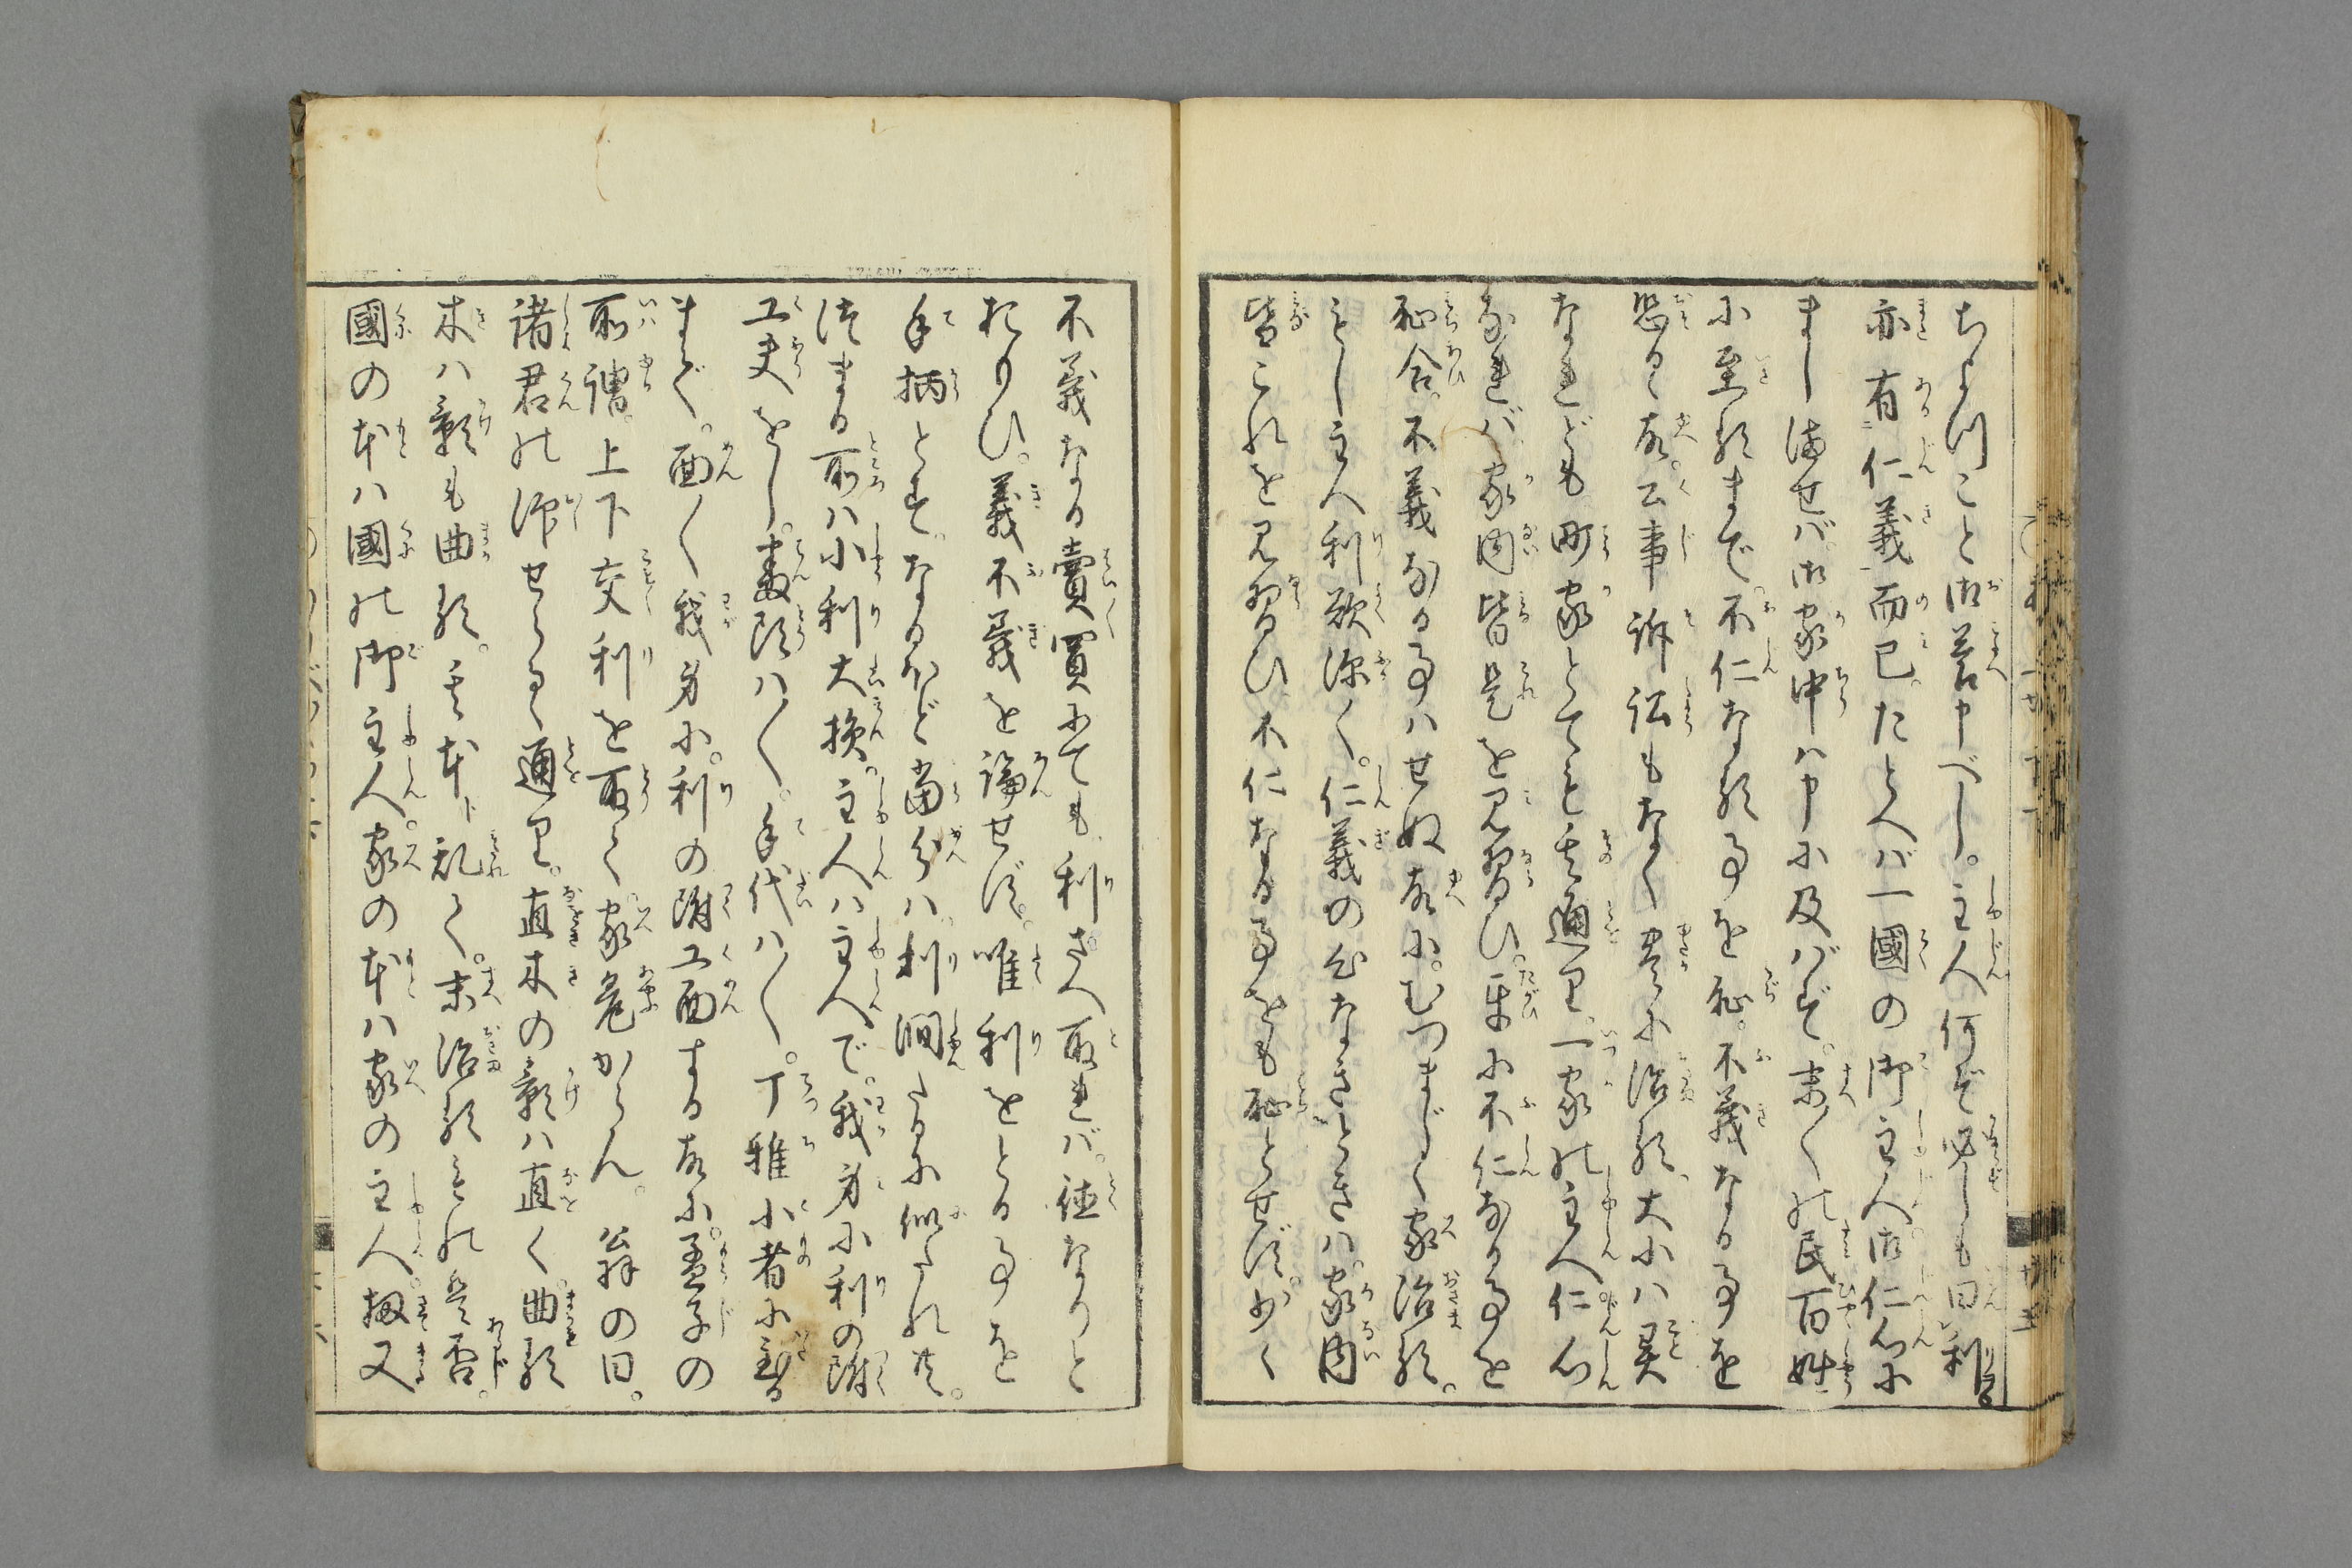 ちよつこと御答申べし。主人何ぞ必しも曰利
亦有仁義而已。たとへバ一國の御主人御仁心に
まし満せバ。御家中ハ申に及バず。末〱の民百姓
に至るまで。不仁なる事を恥。不義なる事を
恐るゝ故。公事訴訟もなく安らに治る。大小ハ異
なれども町家とても其通里。一家の主人仁心
なれバ。家内皆是を見習ひ。互に不仁なる事を
恥合。不義なる事ハせぬ故に。むつまじく家治る。
もし主人利欲深く。仁義の心なきときハ。家内
皆これを見習ひ不仁なる事をも恥とせず。少く
不義なる賣買にても。利さへ取れバ。徳なりと
おもひ。義不義を論せず。唯利をとる事を
手柄とす。なるほど當分ハ利潤たるに似たれ共。
つまる所ハ小利大損。主人ハ主人で。我身に利の附
工夫をし。番頭ハ〱。手代ハ〱。丁稚小者に至る
まで。面〱我身に。利の附工面する故に。孟子の
所謂。上下交利を取て。家危からん。翁の曰。
諸君の仰せらるゝ通里。直木の影ハ直く。曲る
木ハ影も曲る。其本乱て。末治るものは否。
國の本ハ國の御主人。家の本ハ家の主人。扨又